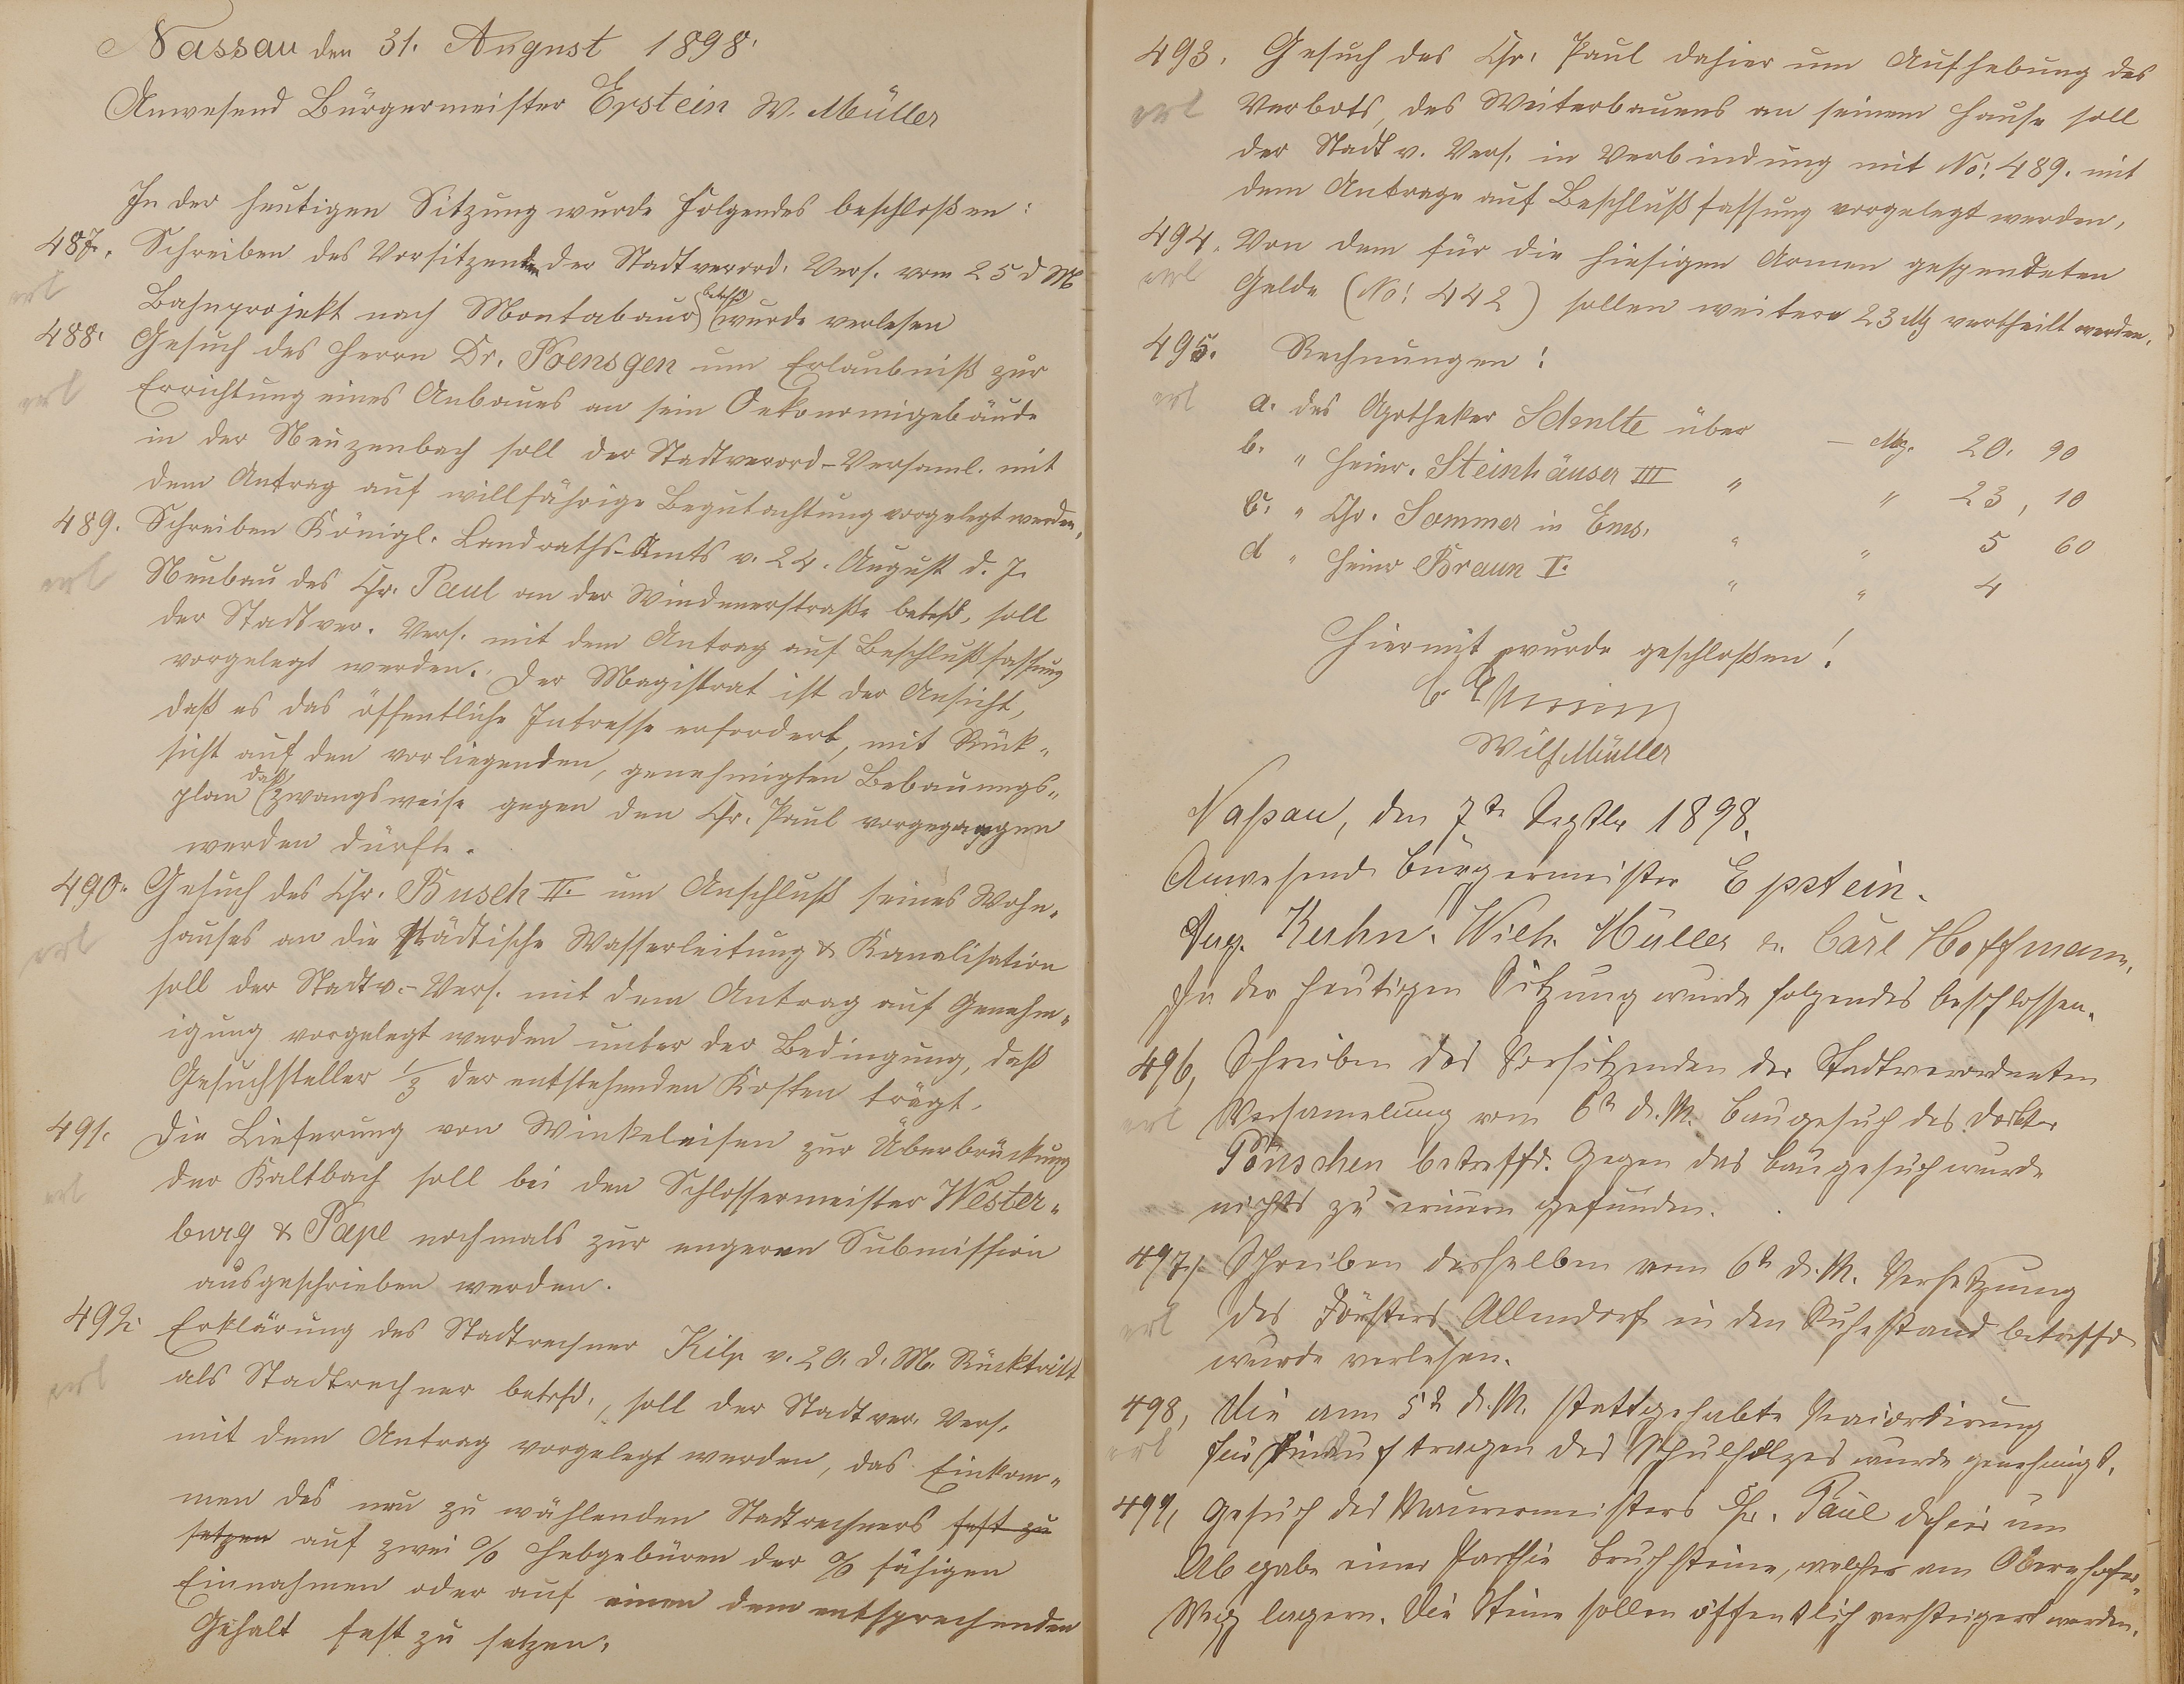 Nassau den 31. August 1898.
Anwesend Bürgermeister Epstein W. Müller
In der heutigen Sitzung wurde Folgendes beschloßen:
487. Schreiben des Vorsitzenden der Stadtverord. Vers. vom 25 d M
erl
Bahnprojekt nach Montabaur betrfd wurde verlesen
488. Gesuch des Herrn Dr. Poensgen um Erlaubniß zur
erl
Errichtung eines Anbaues an sein Oekonomigebäude
in der Neuzenbach soll der Stadtverord-Versaml. mit
dem Antrag auf willfährige Begutachtung vorgelegt werden.
489. Schreiben Königl. Landraths-Amts v. 24. August d. J.
erl
Neubau des Chr. Paul an der Windenerstraße betrfd, soll
der Stadtver. Vers. mit dem Antrag auf Beschlußfassung
vorgelegt werden. Der Magistrat ist der Ansicht,
daß es das öffentliche Intresse erfordert, mit Rück-
sicht auf den vorliegenden, genehmigten Bebauungs-
plan daß zwangsweise gegen den Chr. Paul vorgegangen
werden dürfte.
490. Gesuch des Chr. Busch II. um Anschluß seines Wohn-
erl
hauses an die städtische Wasserleitung & Kanalisation
soll der Stadtv.-Vers. mit dem Antrag auf Genehm-
igung vorgelegt werden unter der Bedingung, daß
Gesuchsteller 1/3 der entstehenden Kosten trägt.
491. Die Lieferung von Winkeleisen zur Überbrückung
erl
der Kaltbach soll bei den Schlossermeister Wester-
burg & Pape nochmals zur engeren Submission
ausgeschrieben werden.
492. Erklärung des Stadtrechner Kilp v. 20. d. M. Rücktritt
erl
als Stadtrechner betrfd., soll der Stadtver. Vers.
mit dem Antrag vorgelegt werden, das Einkom-
men des neu zu wählenden Stadtrechners fest zu
setzen auf zwei % Hebgebüren der % fähigen
Einnahmen oder auf einen dem entsprechenden
Gehalt fest zu setzen.
493. Gesuch des Chr. Paul dahier um Aufhebung des
erl
Verbots, des Weiterbauens an seinem Hause soll
der Stadt v. Vers. in Verbindung mit No: 489. mit
dem Antrage auf Beschlußfassung vorgelegt werden.
494. Von dem für die hiesigen Armen gespendeten
erl
Gelde (No: 442) sollen weitere 23 M vertheilt werden.
495. Rechnungen:
erl
a. des Apotheker Schulte über — Mg. 20. 90
b. " Heinr. Steinhäuser III " " 23, 10
c. " Chr. Sommer in Ems. " " 5 60
d " Heinr Braun I. " " 4
Hiermit wurde geschloßen!
Epstein
Wilh Müller
Naßau, den 7te Septbr 1898.
Anwesend Bürgermeister Epstein.
Aug. Kuhn. Wilh. Müller u. Carl Hoffmann.
In der heutigen Sitzung wurde folgendes beschlossen.
496, Schreiben des Vorsitzenden der Stadtverordneten
erl
Versamelung vom 6n d. M. Baugesuch des Doktor
Pönschen betreffd. Gegen das Baugesuch wurde
nichts zu erinern gefunden.
497, Schreiben desselben vom 6n d. M. Versetzung
erl
des Försters Allendorf in den Ruhestand betreffd
wurde verlesen.
498, Die am 5n d. M. stattgehabte
erl
für Hinauftragen des Schulholzes wurde genehmigt.
499, Gesuch des Maurermeisters Chr. Paul dahier um
Abgabe einer Parthie Bruchsteine, welche am Obernhofer-
Weg lagern. Die Steine sollen öffentlich versteigert werden.